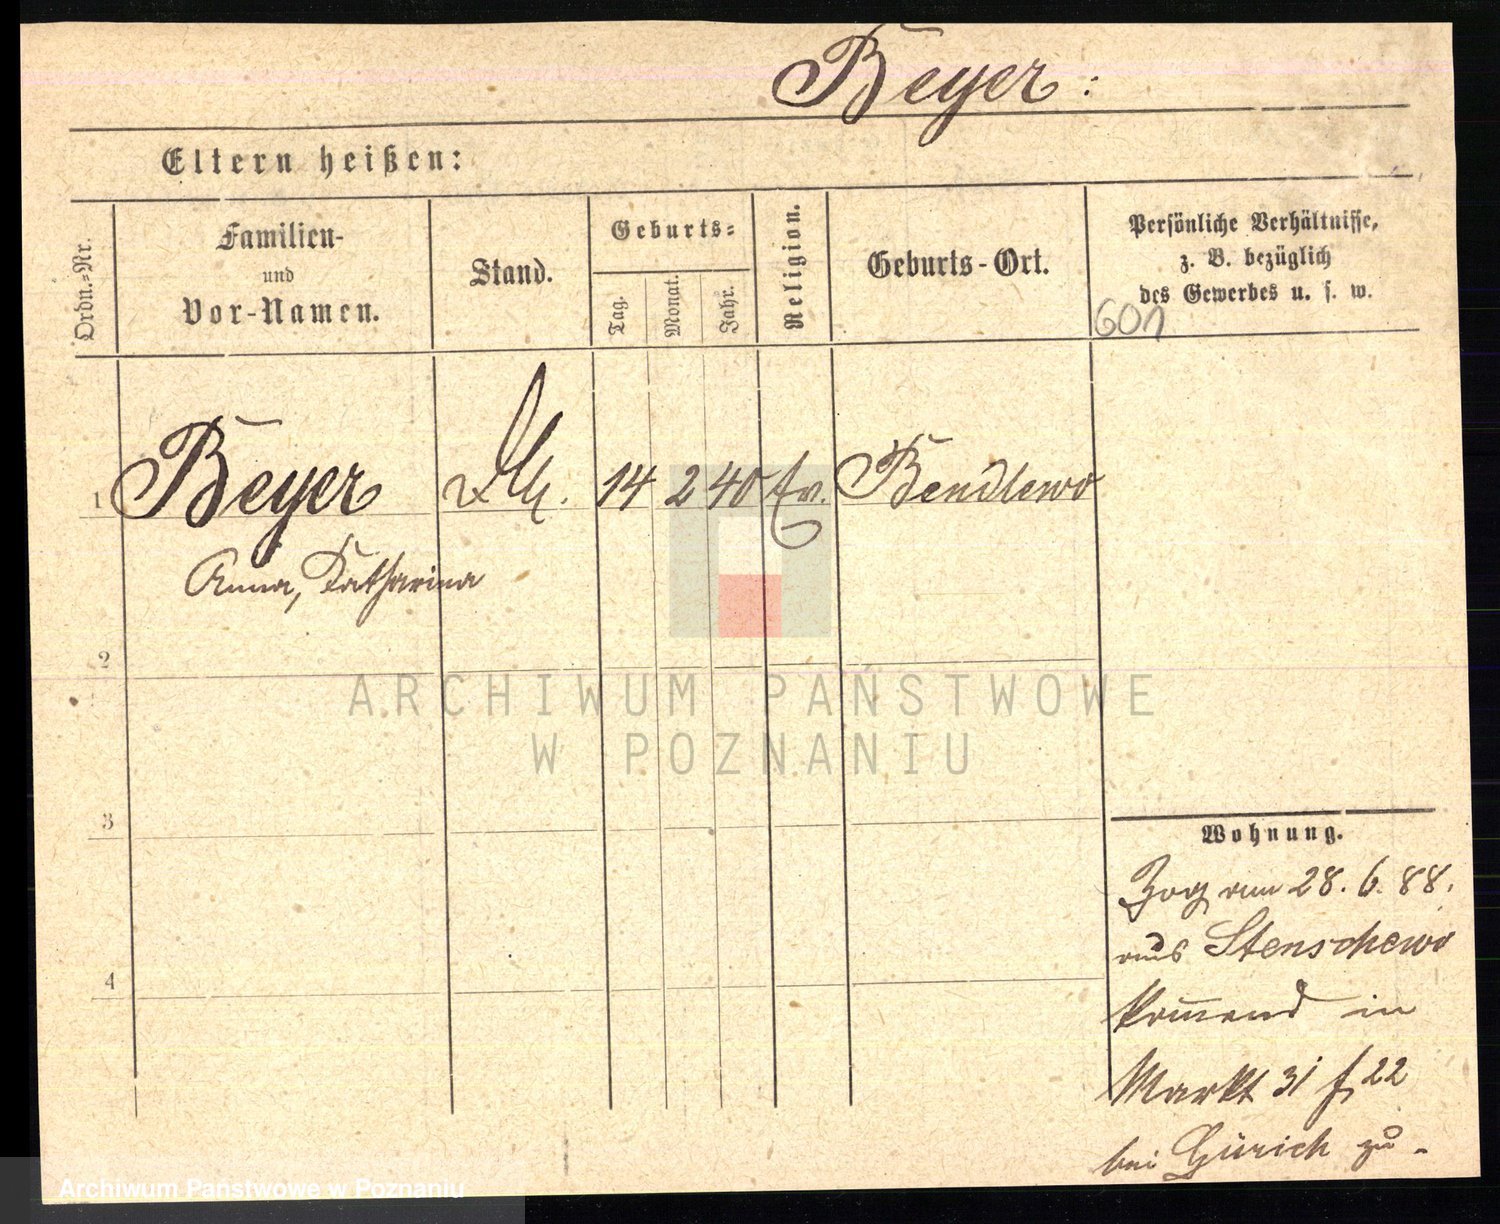 Beyer :
Eltern heißen:
Ordn.-Nr.
Familien-
und
Vor-Namen.
Stand.
Geburts-
Tag.
Monat.
Jahr.
Religion.
Geburts-Ort.
Persönliche Verhältnisse,
z. B. bezüglich
des Gewerbes u. s. w.
601
1 Beyer 14 2 40 Ev. Bendlewo
Anna, Katharina
2
3
4
ARCHIWUM PAŃSTWOWE
W POZNANIU
Wohnung.
Zog am 28. 6. 88.
aus Stenschewo
kom̄end in
Markt 31 22
bei Gürich zu-
Archiwum Państwowe w Poznaniu